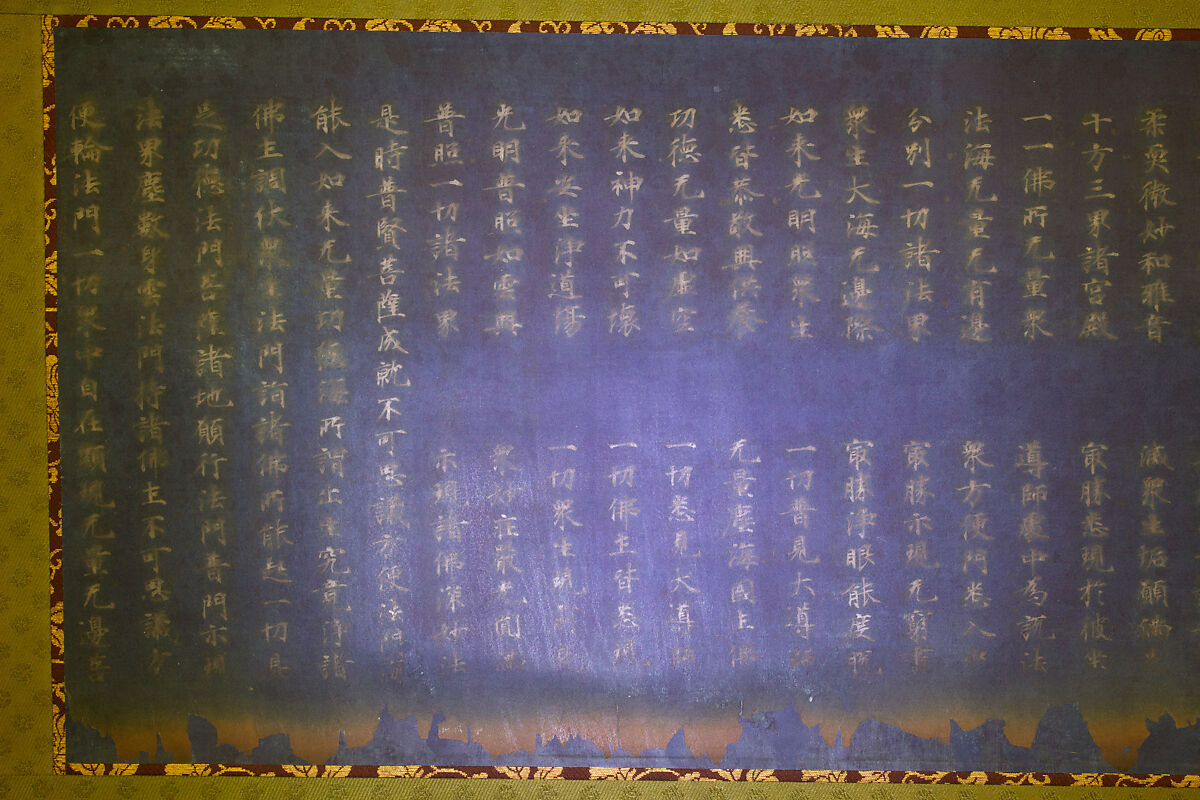 柔耎微妙和雅音 滅眾生垢願佛
十方三界諸宮殿 最勝悉現於彼坐
一一佛所无量眾 導師處中為說法
法海无量无有邊 眾方便門悉入
分別一切諸法界 最勝示現无窮盡
眾生大海无邊際 最勝淨眼能度脫
如来光明照眾生 一切普見大導師
悉皆恭敬興供養 无量塵海國土佛
功德无量如虛空 一切悉見大導師
如来神力不可壞 一切佛土皆悉現
如来安坐淨道場 一切眾生現
光明普照如雲興 眾妙莊嚴光圓滿
普照一切諸法界 示現諸佛深妙法
是時普賢菩薩成就不可思議方便法門
能入如来无量功德海所謂出生究竟淨諸
佛土調伏眾生法門詣諸佛所能起一切具
足功德法門菩薩諸地願行法門普門示現
法界塵數身雲法門持諸佛土不可思議方
便輪法門一切眾中自在顯現无量无邊菩